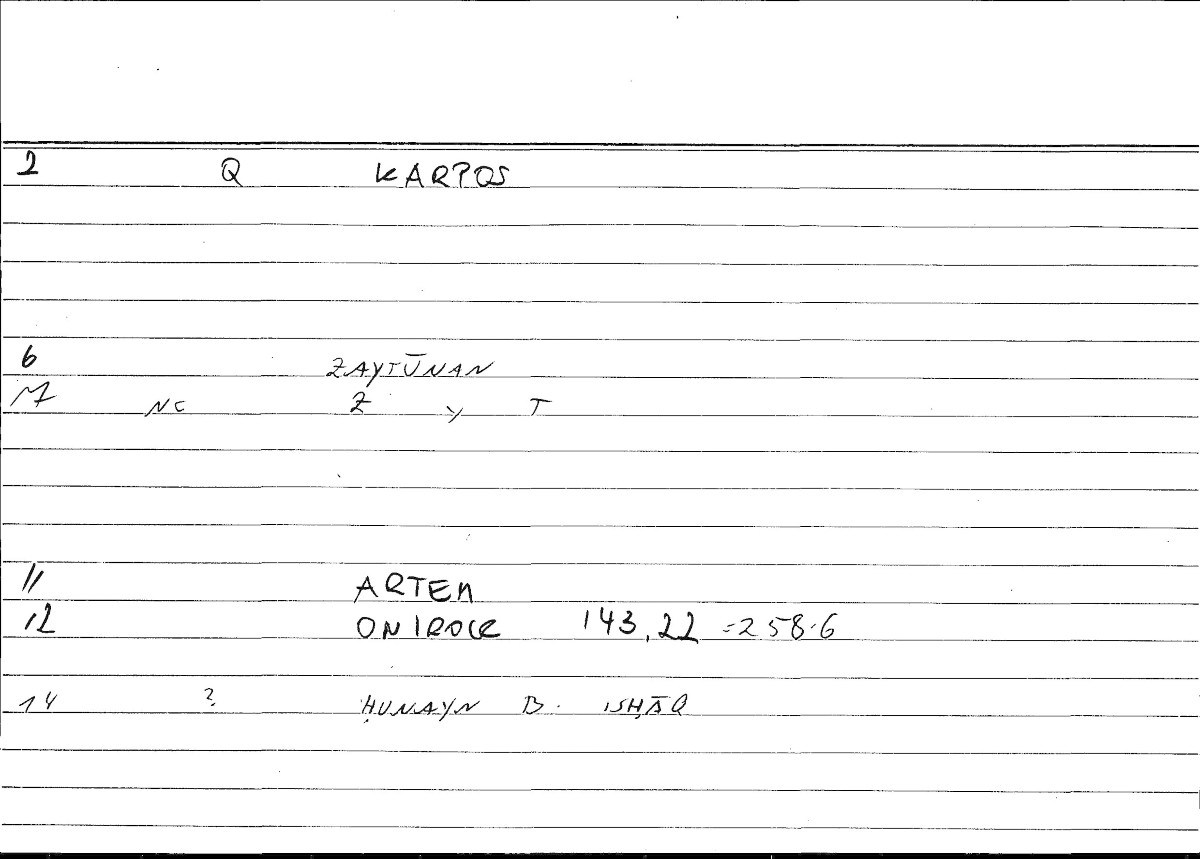 2 Q KARPOS
6 ZAYTŪNAN
NC Z Y T
11 ARTEM
12 ONIROCR 143,22 =258.6
14 ? ḤUNAYN B. ISḤĀQ